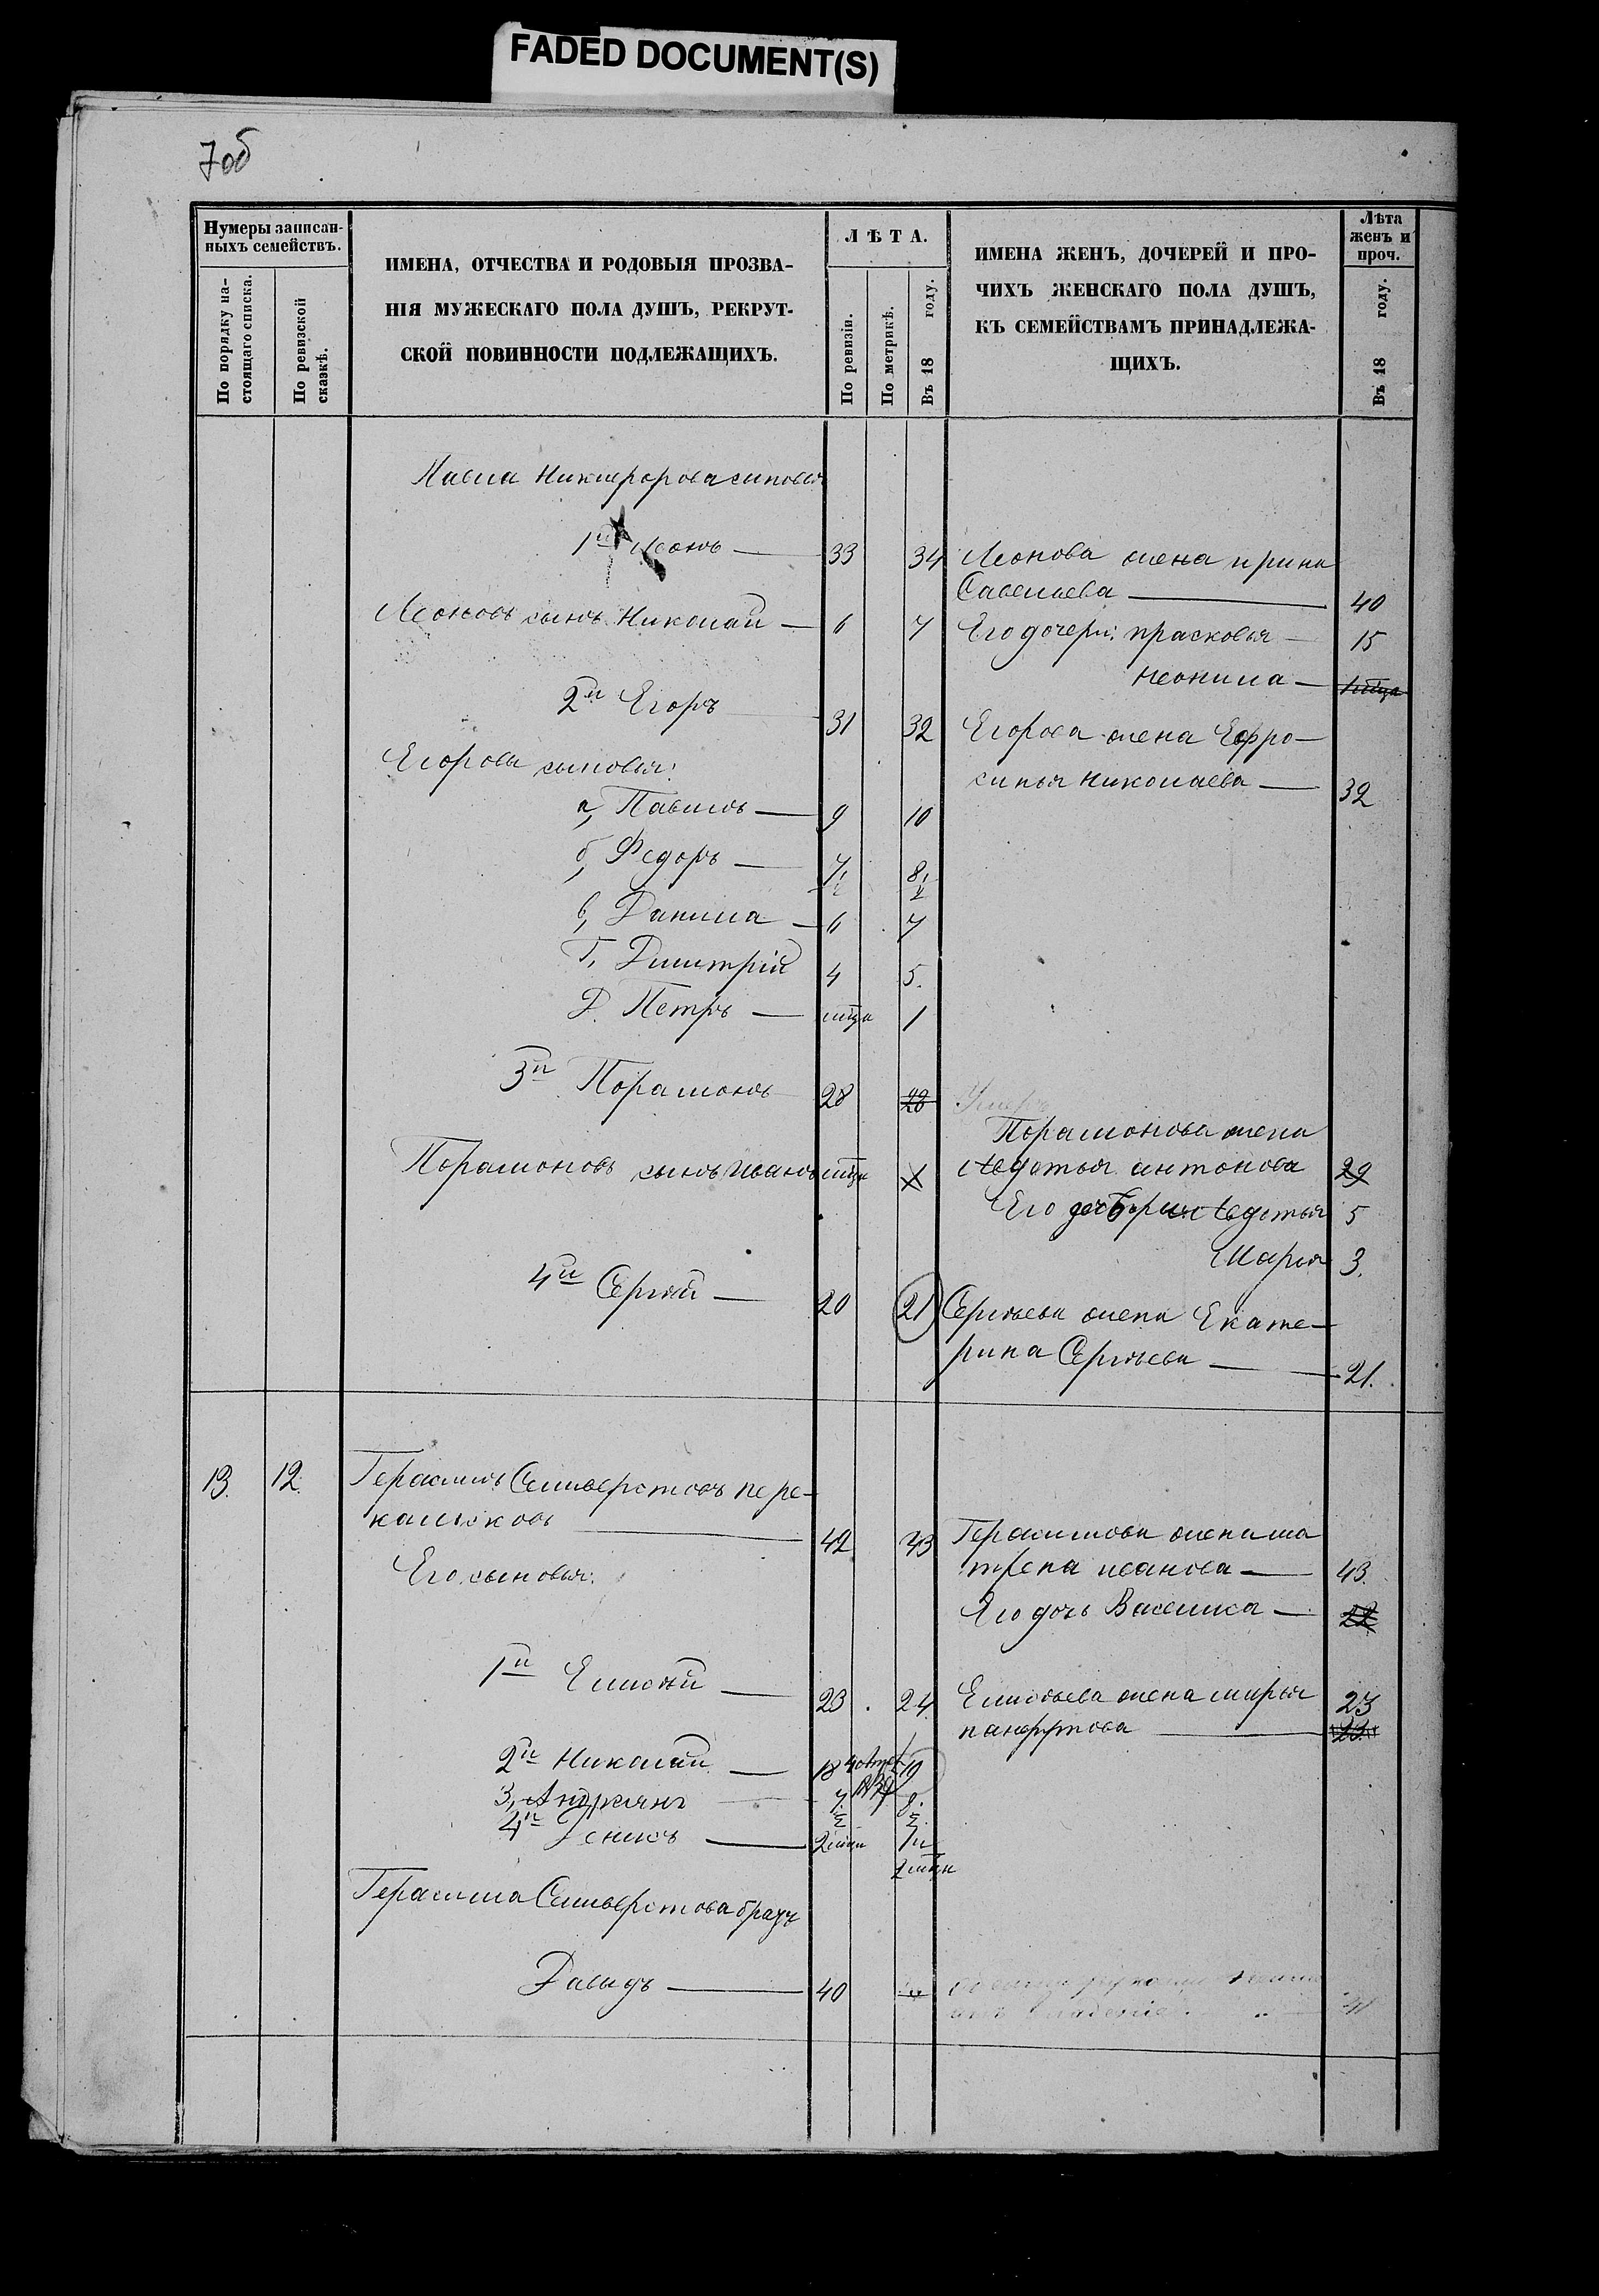 FADED DOCUMENT(S)
7об
Нумеры записан-
ныхъ семействъ.
По порядку на-
стоящаго списка.
По ревизской
сказкѣ.
ИМЕНА, ОТЧЕСТВА И РОДОВЫЯ ПРОЗВА-
НІЯ МУЖЕСКАГО ПОЛА ДУШЪ, РЕКРУТ-
СКОЙ ПОВИННОСТИ ПОДЛЕЖАЩИХЪ.
ЛѢТА.
По ревизіи.
По метрикѣ.
Въ 18 году.
ИМЕНА ЖЕНЪ, ДОЧЕРЕЙ И ПРО-
ЧИХЪ ЖЕНСКАГО ПОЛА ДУШЪ,
КЪ СЕМЕЙСТВАМЪ ПРИНАДЛЕЖА-
ЩИХЪ.
Лѣта
женъ и
проч.
Въ 18 году.
Павла Никифорова сыновья
1й Леонъ — 33 34 Леонова жена Ирина
Савельева — 40
Леоновъ сынъ Николай — 6 7 Его дочери: Прасковья — 15
Неонила —
2й Егоръ 31 32 Егорова жена Ефро-
синья Николаева — 32
Егоровы сыновья:
а, Павелъ — 9 10
б, Федоръ — 7½ 8½
в, Данила — 6 7
Г. Дмитрій 4 5.
Д. Петръ — мѣца 1
3й Порамонъ 28 28 Умеръ
Порамонова жена
Порамоновъ сынъ Иванъ мѣца 1 Авдотья Антонова 29
Его дочери Авдотья 5
Марья 3.
4й Сергѣй — 20 21 Сергѣева жена Екате-
рина Сергѣева — 21.
13. 12. Герасимъ Селиверстовъ Пере-
калюковъ — 42 43 Герасимова жена Ма
трена Иванова — 43.
Его сыновья:
Его дочь Василиса — 22
1й Елисѣй — 23 24 Елисѣева жена Марья 23
Панфутова — 23
2й Николай — 18 19
3, Андреянъ 7½ 8½
4й Денисъ —
Герасима Селиверстова братъ
Давыдъ — 40